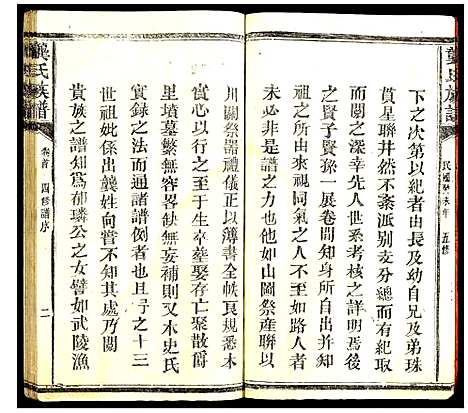 龔氏族譜
民國癸未年 五修
下之次第以紀者由長及幼自兄及弟珠
貫星聯井然不紊派別支分總而有攷
而閱之深幸先人世系考核之詳明爲後
之賢子賢孫一展卷間知身所自出并知
祖之所由來視同氣之人不至如路人者
未必非是譜之力也他如山圖祭產聯以
川圖祭器禮儀正以簿書全帙良規悉本
實心以行之至于生卒葬娶存亡聚散爵
里墳墓繁無容畧缺無妄補則又本史氏
實錄之法而通諸譜例者也且予之十三
世祖妣係出龔姓向嘗不知其處乃閱
貴族之譜知爲郁璘公之女譬如武陵漁
龔氏族譜
卷首 四修譜序
二